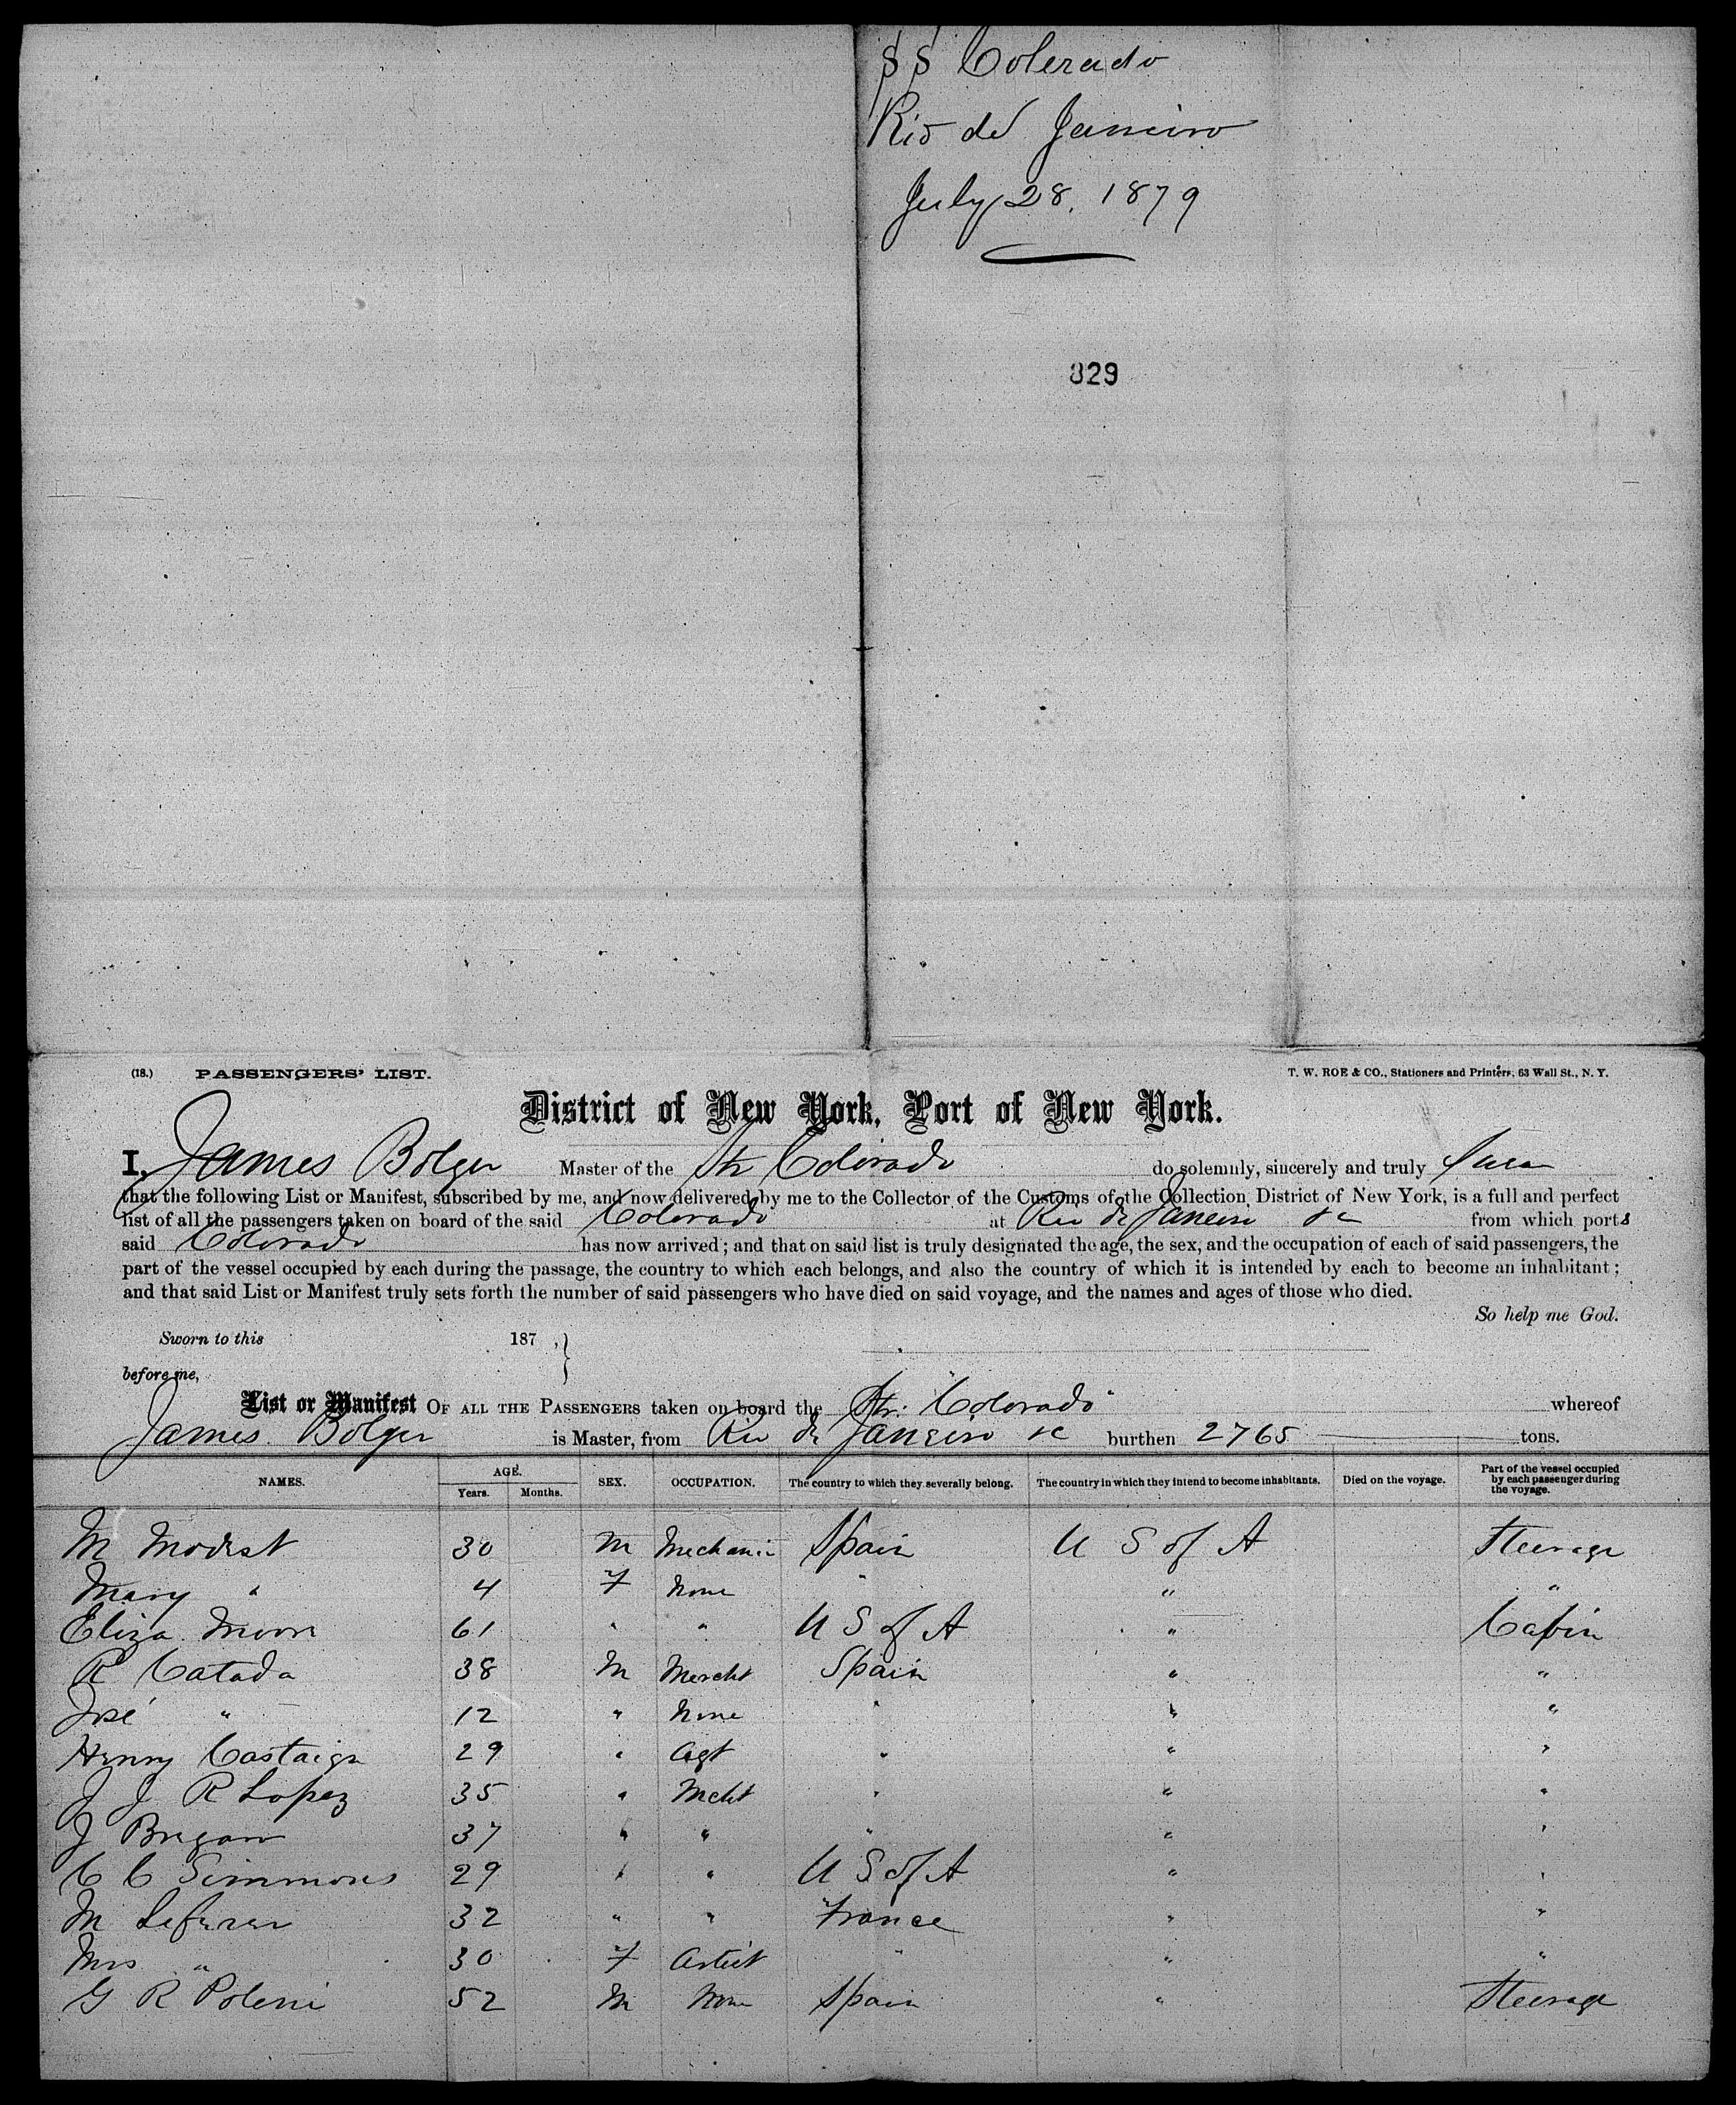 SS Colerado
Rio de Janeiro
July 28, 1879
829
(18.) PASSENGERS' LIST. T. W. ROE & CO., Stationers and Printers, 63 Wall St., N. Y.
District of New York, Port of New York.
I, James Bolger Master of the Str Colorado do solemnly, sincerely and truly swear
that the following List or Manifest, subscribed by me, and now delivered by me to the Collector of the Customs of the Collection District of New York, is a full and perfect
list of all the passengers taken on board of the said Colorado at Rio de Janeiro &c from which ports
said Colorado has now arrived; and that on said list is truly designated the age, the sex, and the occupation of each of said passengers, the
part of the vessel occupied by each during the passage, the country to which each belongs, and also the country of which it is intended by each to become an inhabitant;
and that said List or Manifest truly sets forth the number of said passengers who have died on said voyage, and the names and ages of those who died.
So help me God.
Sworn to this 187 ,}
before me,
List or Manifest OF ALL THE PASSENGERS taken on board the Str. "Colorado" whereof
James Bolger is Master, from Rio de Janeiro &c burthen 2765 tons.
NAMES. AGE. Years. Months. SEX. OCCUPATION. The country to which they severally belong. The country in which they intend to become inhabitants. Died on the voyage. Part of the vessel occupied by each passenger during the voyage.
M Modest 30 M Mechanic Spain U S of A Steerage
Mary " 4 F None " " "
Eliza Moore 61 " " U S of A " Cabin
R Catada 38 M Mercht Spain " "
José " 12 " None " " "
Henry Castaign 29 " Agt " " "
J J R Lopez 35 " Mcht " " "
J 37 " " " " "
C C Simmons 29 " " U S of A " "
M 32 " " France " "
Mrs " 30 F Artist " " "
G R Poleni 52 M None Spain " Steerage